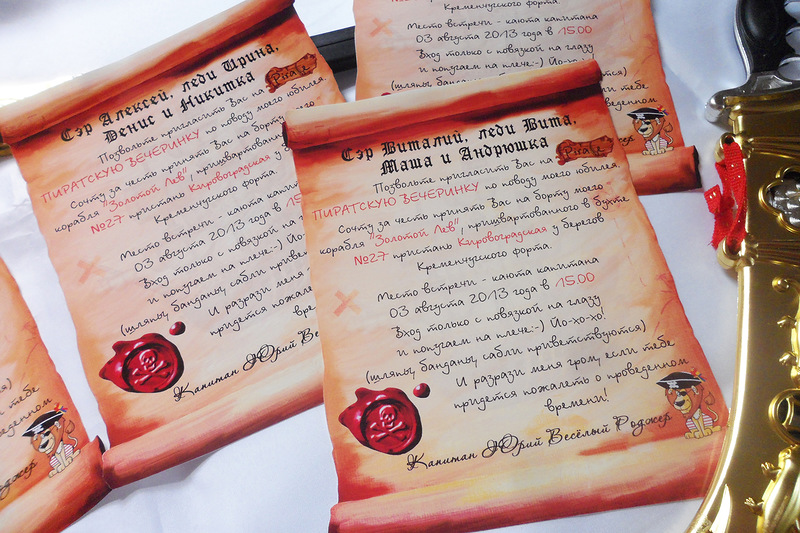 Кременчугского форта.
Место встречи - каюта капитана
03 августа 2013 года в 15.00
Вход только с повязкой на глазу
и попугаем на плече:-) Йо-хо-хо!
(шляпы, банданы, сабли приветствуются)
тебе
проведенном
Сэр Алексей, леди Ирина,
Денис и Никитка
Pirate
Позвольте пригласить Вас на
ПИРАТСКУЮ ВЕЧЕРИНКУ по поводу моего юбилея.
Сочту за честь принять Вас на борту моего
корабля "Золотой Лев", пришвартованного
№27 пристани Кировоградская у
Кременчугского форта.
Место встречи - каюта капитана
03 августа 2013 года в 15
Вход только с повязкой на
и попугаем на плече:-) Йо
(шляпы, банданы, сабли приветст
И разрази меня
придется пожалеть
вре
Капитан Юрий Весё
Сэр Виталий, леди Вита,
Маша и Андрюшка
Pirate
Позвольте пригласить Вас на
ПИРАТСКУЮ ВЕЧЕРИНКУ по поводу моего юбилея.
Сочту за честь принять Вас на борту моего
корабля "Золотой Лев", пришвартованного в бухте
№27 пристани Кировоградская у берегов
Кременчугского форта.
Место встречи - каюта капитана
03 августа 2013 года в 15.00
Вход только с повязкой на глазу
и попугаем на плече:-) Йо-хо-хо!
(шляпы, банданы, сабли приветствуются)
И разрази меня гром, если тебе
придется пожалеть о проведенном
времени!
Капитан Юрий Весёлый Роджер
тебе
веденном
Роджер